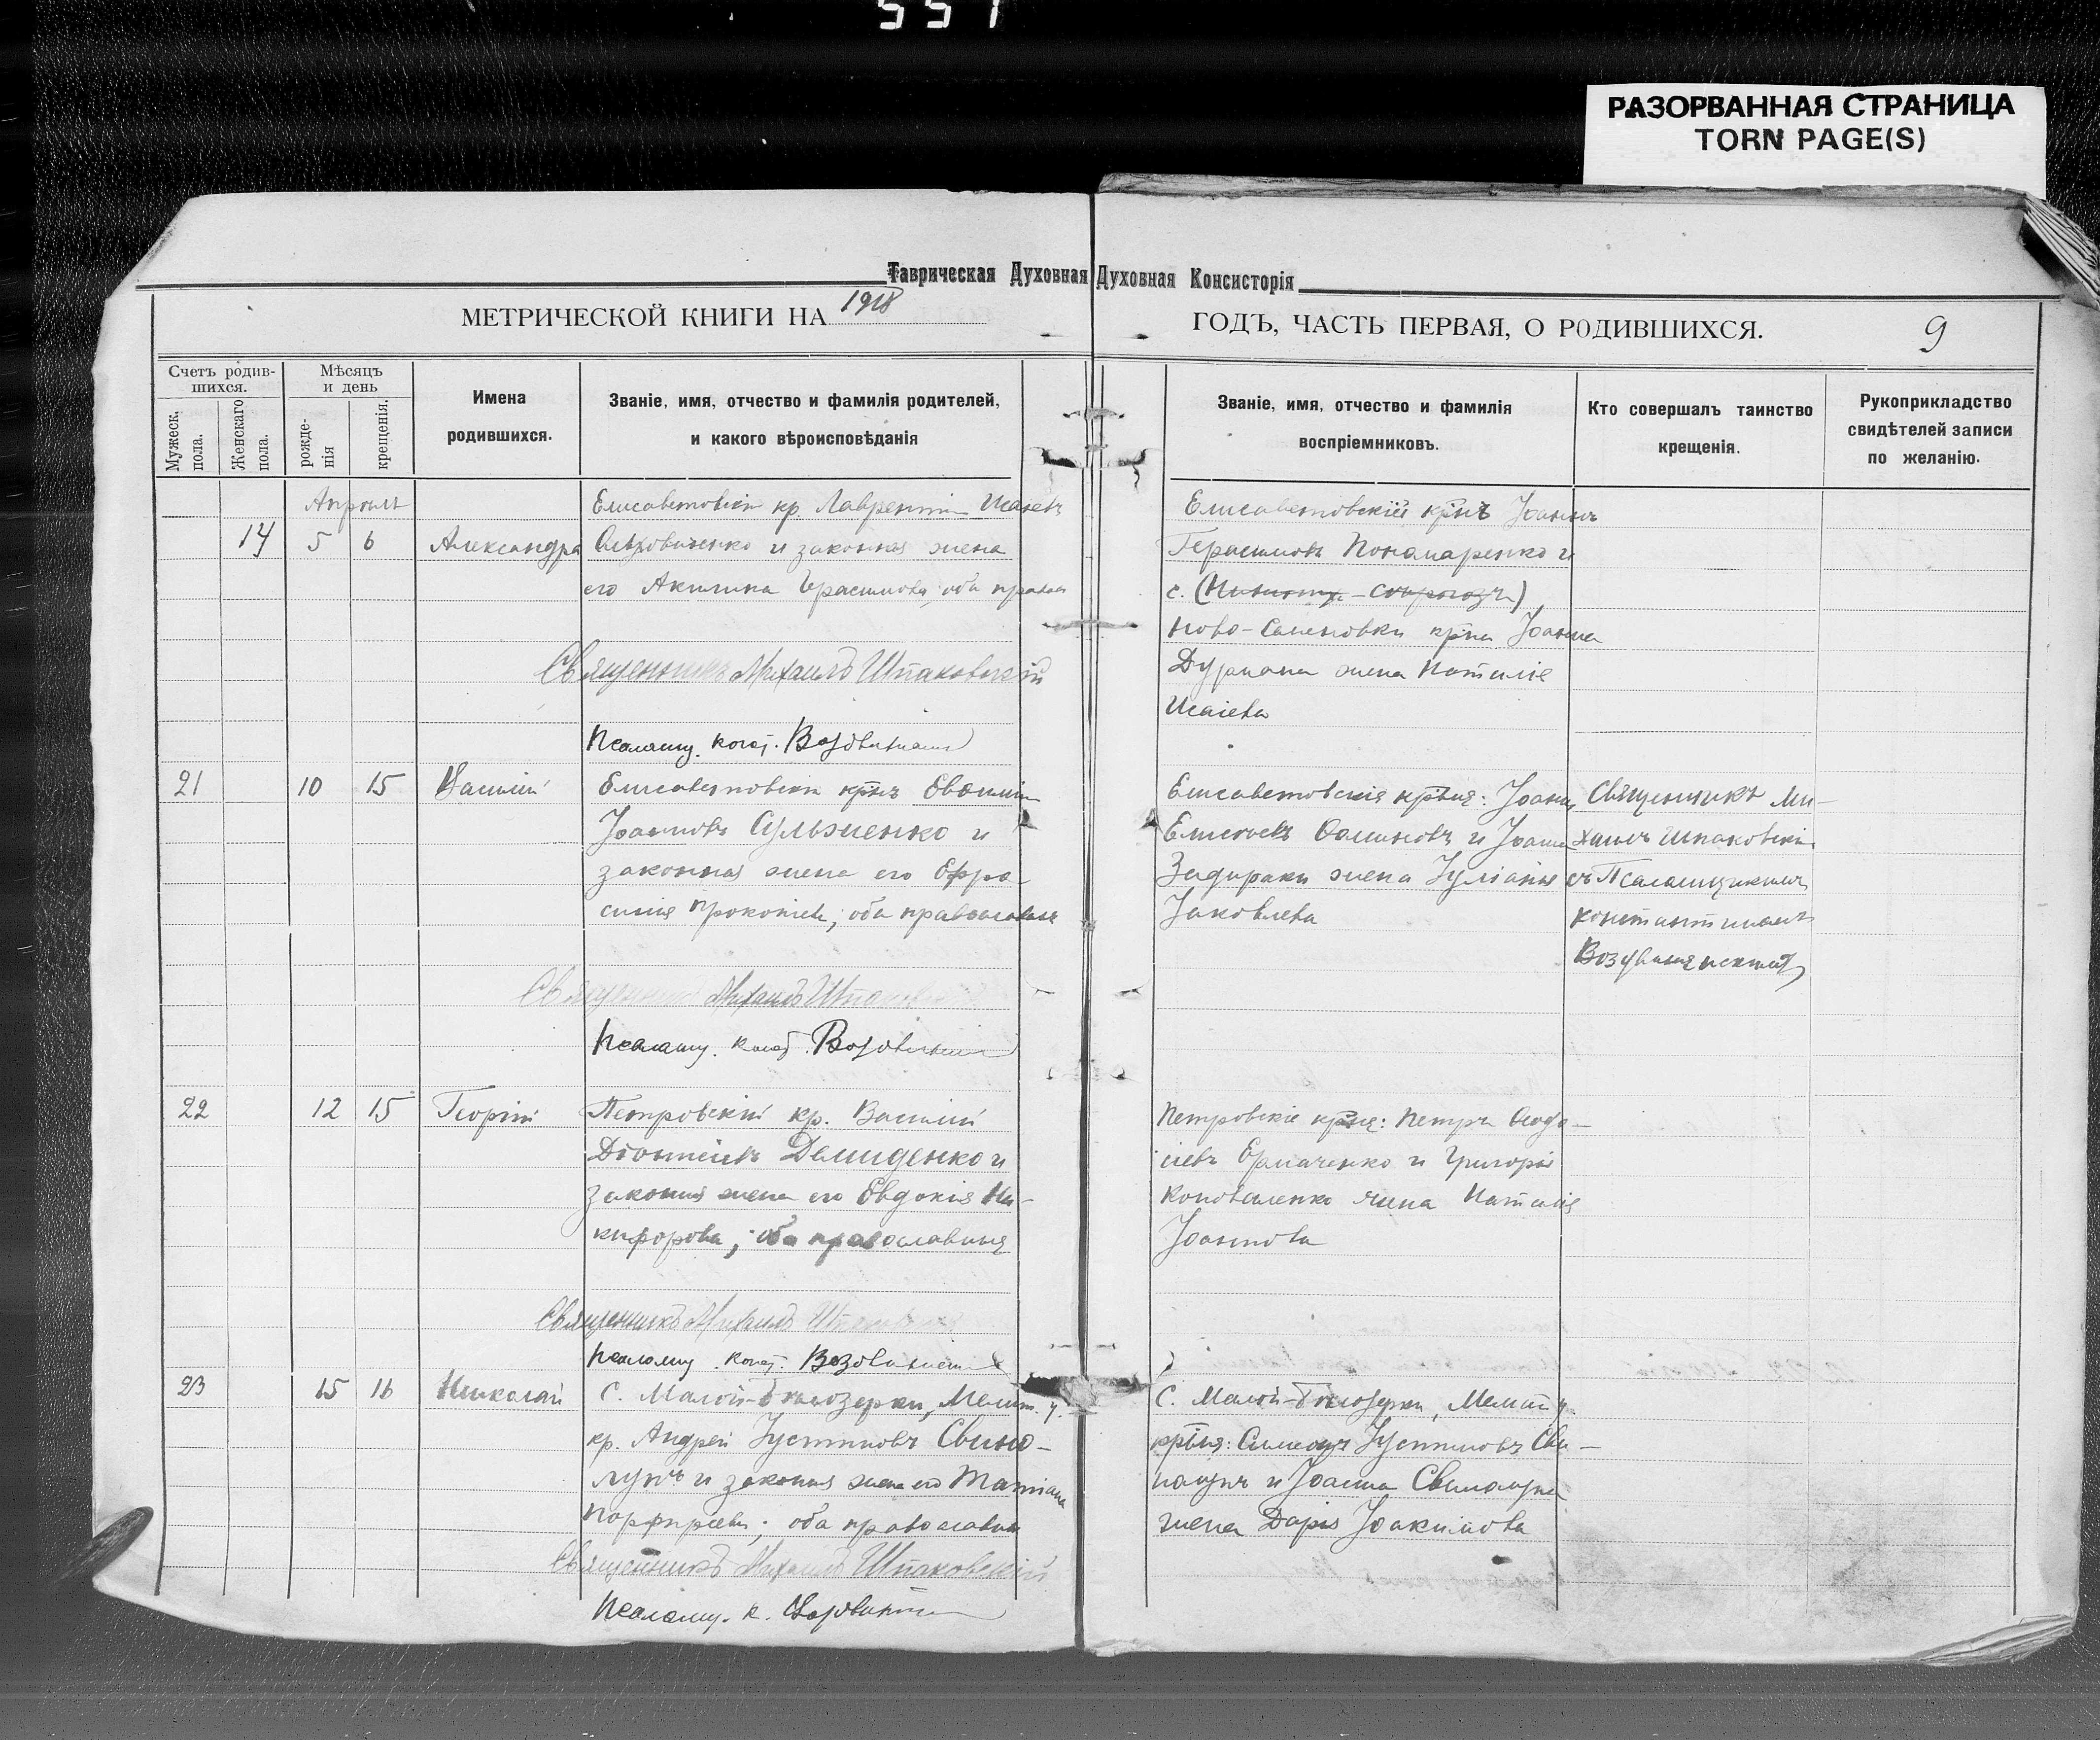 551
РАЗОРВАННАЯ СТРАНИЦА
TORN PAGE(S)
Таврическая Духовная Духовная Консисторія
МЕТРИЧЕСКОЙ КНИГИ НА 1918 ГОДЪ, ЧАСТЬ ПЕРВАЯ, О РОДИВШИХСЯ. 9
Счетъ родив-
шихся.
Мужеск.
пола.
Женскаго
пола.
Мѣсяцъ
и день
рожде-
нія
крещенія.
Имена
родившихся.
Званіе, имя, отчество и фамилія родителей,
и какого вѣроисповѣданія
Званіе, имя, отчество и фамилія
воспріемниковъ.
Кто совершалъ таинство
крещенія.
Рукоприкладство
свидѣтелей записи
по желанію.
Апрѣль
14 5 6 Александра
Елисаветовскій кр. Лаврентій Исаіевъ
и законная жена
его Акилина Герасимова; оба правосл
Священникъ Михаилъ Шпаковскій
Псаломщ. Конст. Воздвиженскій
Елисаветовскій крнъ Іоаннъ
Герасимовъ Пономаренко и
с.
Ново-Семеновки крна Іоанна
Дурмана жена Наталія
Исаіева
21 10 15 Василій
Елисаветовскій крнъ Евѳимій
Іоанновъ Сульженко и
законная жена его Ефро-
синія Прокопіева; оба православные
Священникъ Михаилъ Шпаковскій
Псаломщ. Конст. Воздвиженскій
Елисаветовскіе крне: Іоаннъ
Елисеевъ и Іоанна
Задираки жена Іуліанія
Іаковлева
Священникъ Ми-
хаилъ Шпаковскій
съ Псаломщикомъ
Константиномъ
Воздвиженскимъ
22 12 15 Георгій
Петровскій кр. Василій
Демиденко и
законная жена его Евдокія Ни-
кифорова; оба православные
Священникъ Михаилъ Шпаковскій
Псаломщ. Конст. Воздвиженскій
Петровскіе крне: Петръ Ѳеодо-
сіевъ Ермаченко и Григорія
Коноваленко жена Наталія
Іоаннова
23 15 16 Николай
С. Малой-Бѣлозерки, Мелит. у.
кр. Андрей Іустиновъ Свино-
лупъ и законная жена его Татіана
Порфиріева; оба православные
Священникъ Михаилъ Шпаковскій
Псаломщ. К. Воздвиженскій
С. Малой-Бѣлозерки, Мелит. у.
крне: Симеонъ Іустиновъ Сви-
нолупъ и Іоанна Свинолупа
жена Дарія Іоакимова